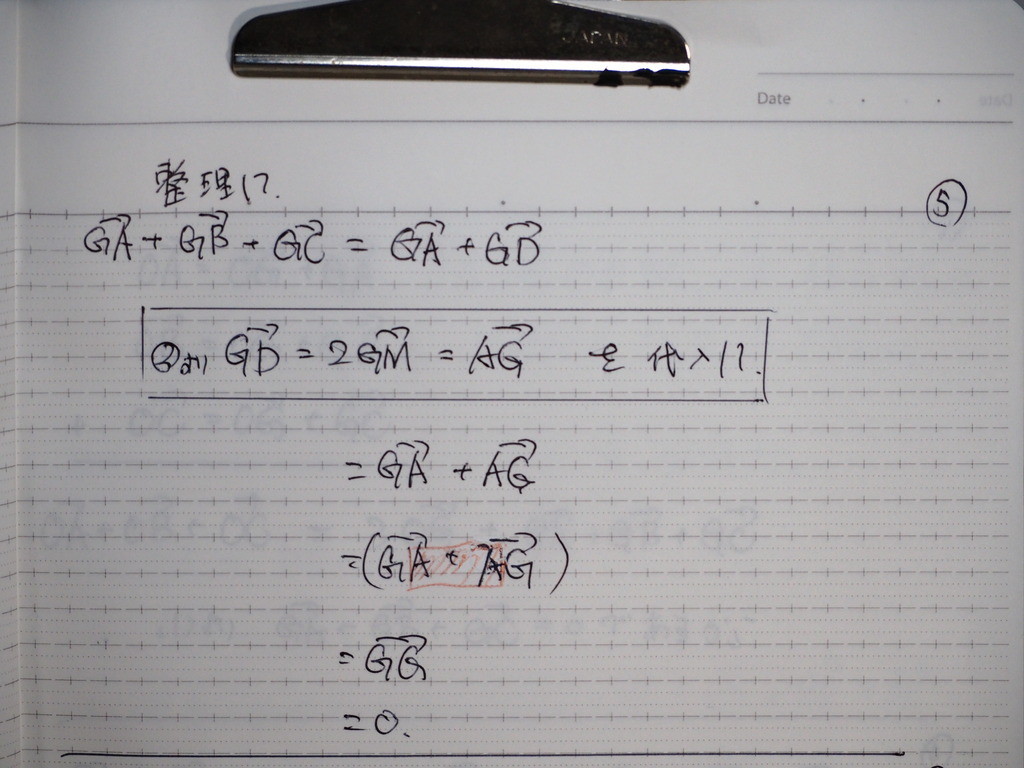 JAPAN
Date
整理して.
⑤
GA→ + GB→ + GC→ = GA→ + GD→
②より GD→ = 2GM→ = AG→ を代入して.
= GA→ + AG→
= (GA→ + AG→)
= GG→
= 0.